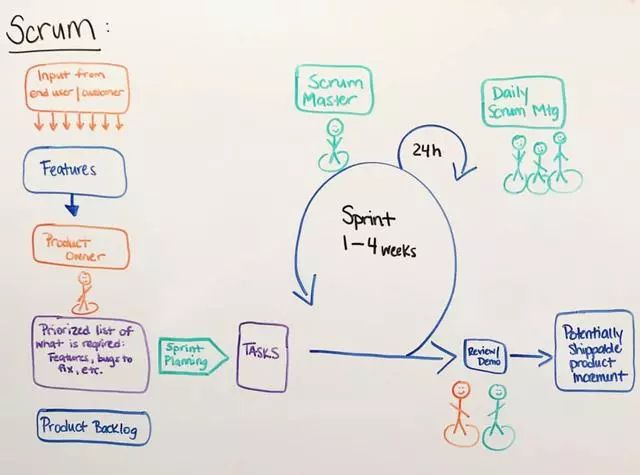 Scrum:
Input from
end user/customer
Features
Product
Owner
Priorized list of
what is required:
Features, bugs to
fix, etc.
Product Backlog
Sprint
Planning
TASKS
Scrum
Master
24h
Daily
Scrum Mtg
Sprint
1-4 weeks
Review/
Demo
Potentially
shippable
product
increment